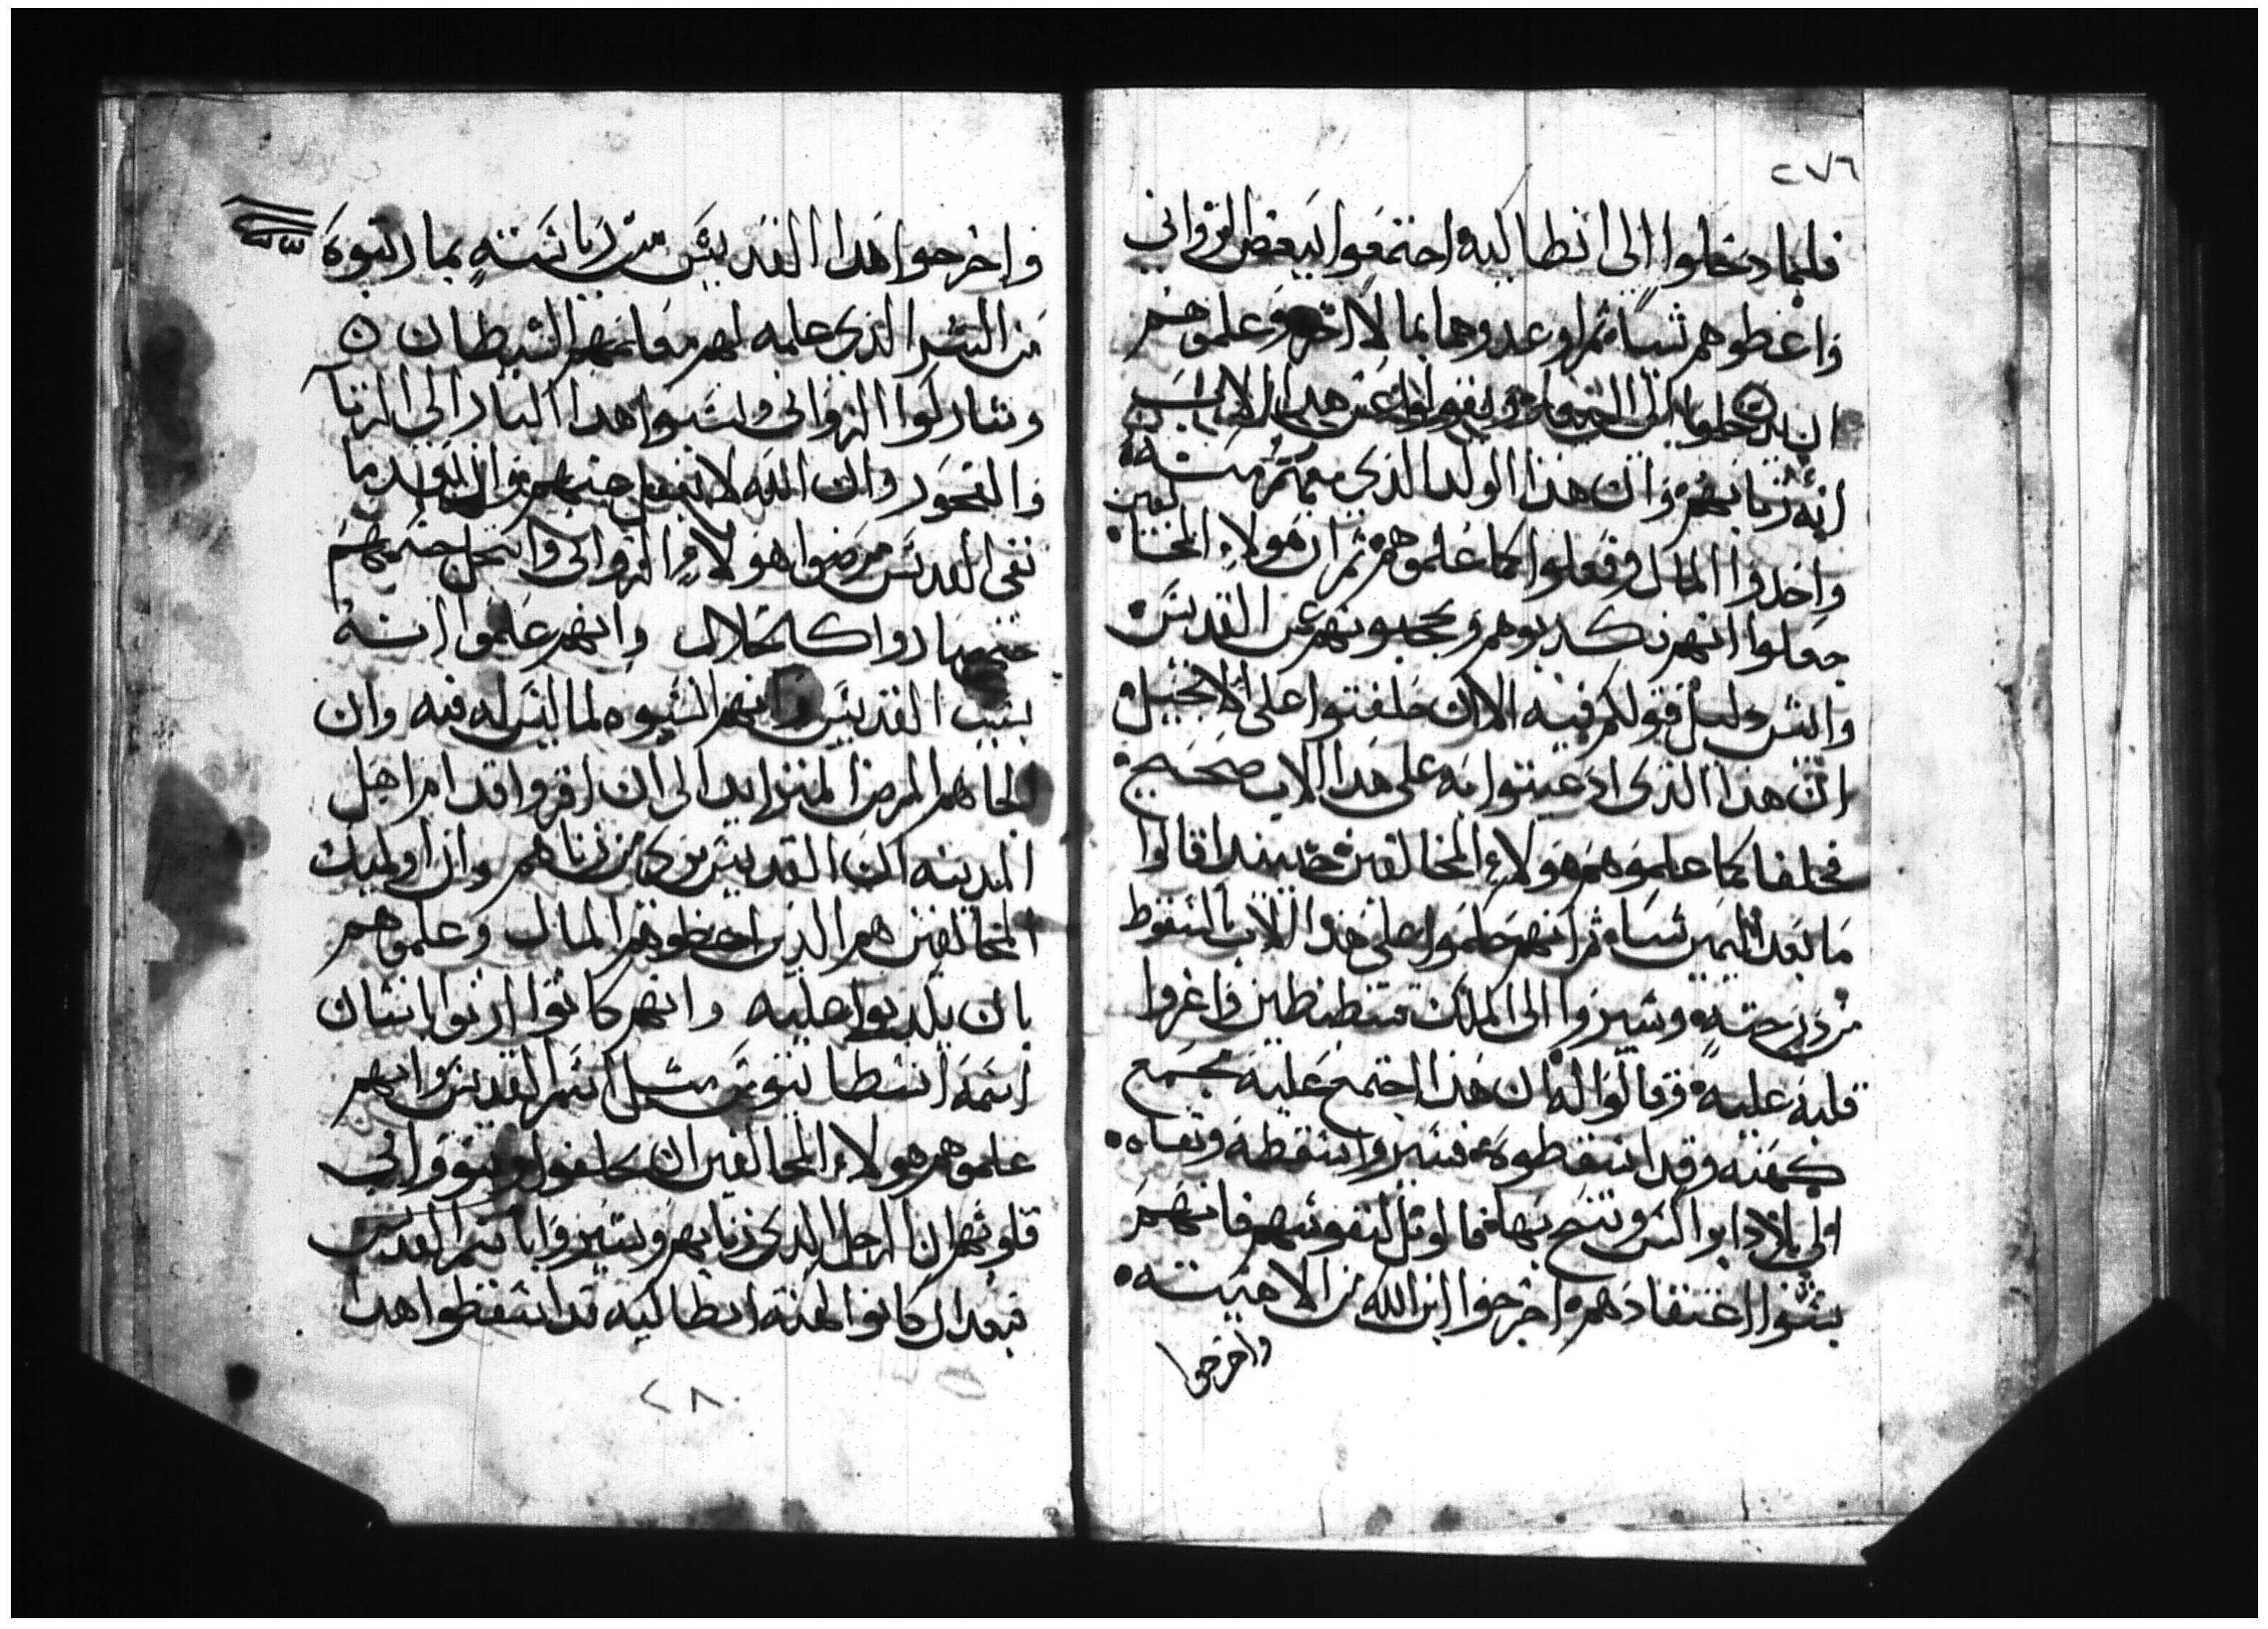 ٢٧٦
فلما دخلوا الى انطاكيه اجتمعوا ببعض الزواني
واعطوهم شيأ ثم اوعدوهما بما لا اخر وعلموهم
ان هذا الاب
انه زنا بهم وان هذا الولد الذي معهم منه
واخدوا المال وفعلوا كما علموهم ثم ان هولاء المخالفين
جعلوا انهم يكدبوهم ويحجبونهم عن القديس
وايش دليل قولكم فيه الا ان حلفتوا على الانجيل
ان هذا الذي ادعيتوا به على هدا الاب صحيح
فحلفا كما علموهم هولاء المخالفين حينيدا قالوا
ما بعد اليمين شياء ثم انهم حكموا على هذا الاب بالسقوط
من درجته وسيروا الى الملك قسطنطين واغروا
قلبه عليه وقالوا له ان هذا اجتمع عليه مجمع
كهنه وقد اسقطوه فسير واسقطه ونفاه
الى بلاد ابراكس وتنيح بها فما اويل لنفوسهم فانهم
بسوا اعتقادهم اخرجوا ابن الله من الاهيته
واخرجوا
واخرجوا هدا القديس من رياسته بما رتبوه
من الشر الذي علمه لهم معلمهم الشيطان
وشاركوا الزواني ونسبوا هدا البار الى الزنا
والفجور وان الله لا يغفل عنهم وان بعد ما
نفى القديس مرضوا هولاء الزواني وانتحل جسمهم
حتى صاروا كالخلال وانهم علموا انه
بسبب القديس وانهم نسبوه لما ليس له فيه وان
الجاهم المرض المتزايد الى ان اقروا قدام اهل
المدينه ان القديس بري من زناهم وان اوليك
المخالفين هم الدين اعطوهم المال وعلموهم
بان يكدبوا عليه وانهم كانوا ازنوا بانسان
اسمه اسطاتيوس مثل اسم القديس وانهم
علموهم هولاء المخالفين ان يحلفوا وينووا في
قلوبهم ان الرجل الدي زنا بهم ويشيروا باسم القديس
فبعد ان كانوا كهنة انطاكيه قد اسقطوا هدا
٢٨٠